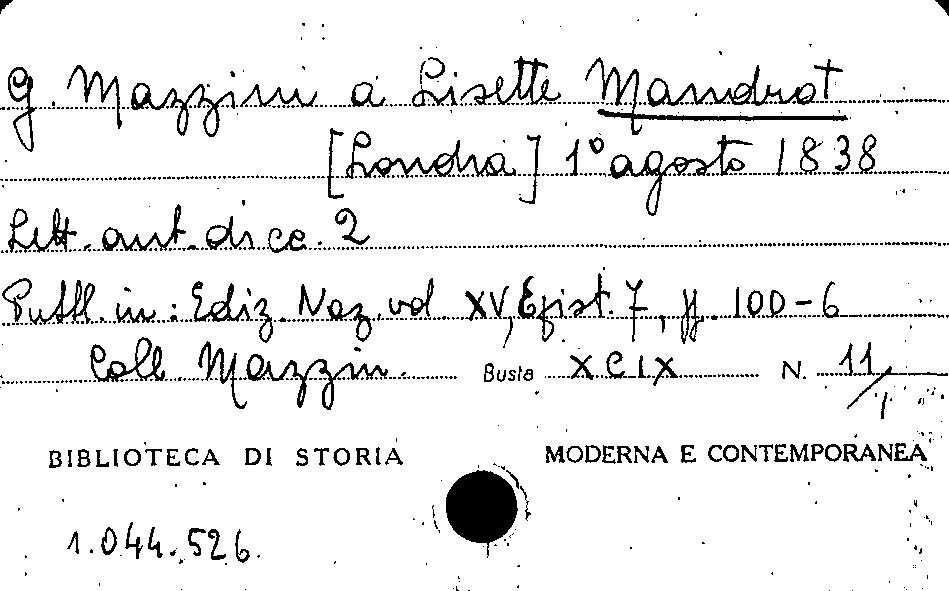 G. Mazzini a Lisette Mandrot
[Londra] 1° agosto 1838
Lett. aut. di cc. 2
Pubbl. in: Ediz. Naz. vol. XV, Epist. 7, pp. 100-6
Coll. Mazzin. Busta XCIX N. 11/1
BIBLIOTECA DI STORIA MODERNA E CONTEMPORANEA
1.044.526.